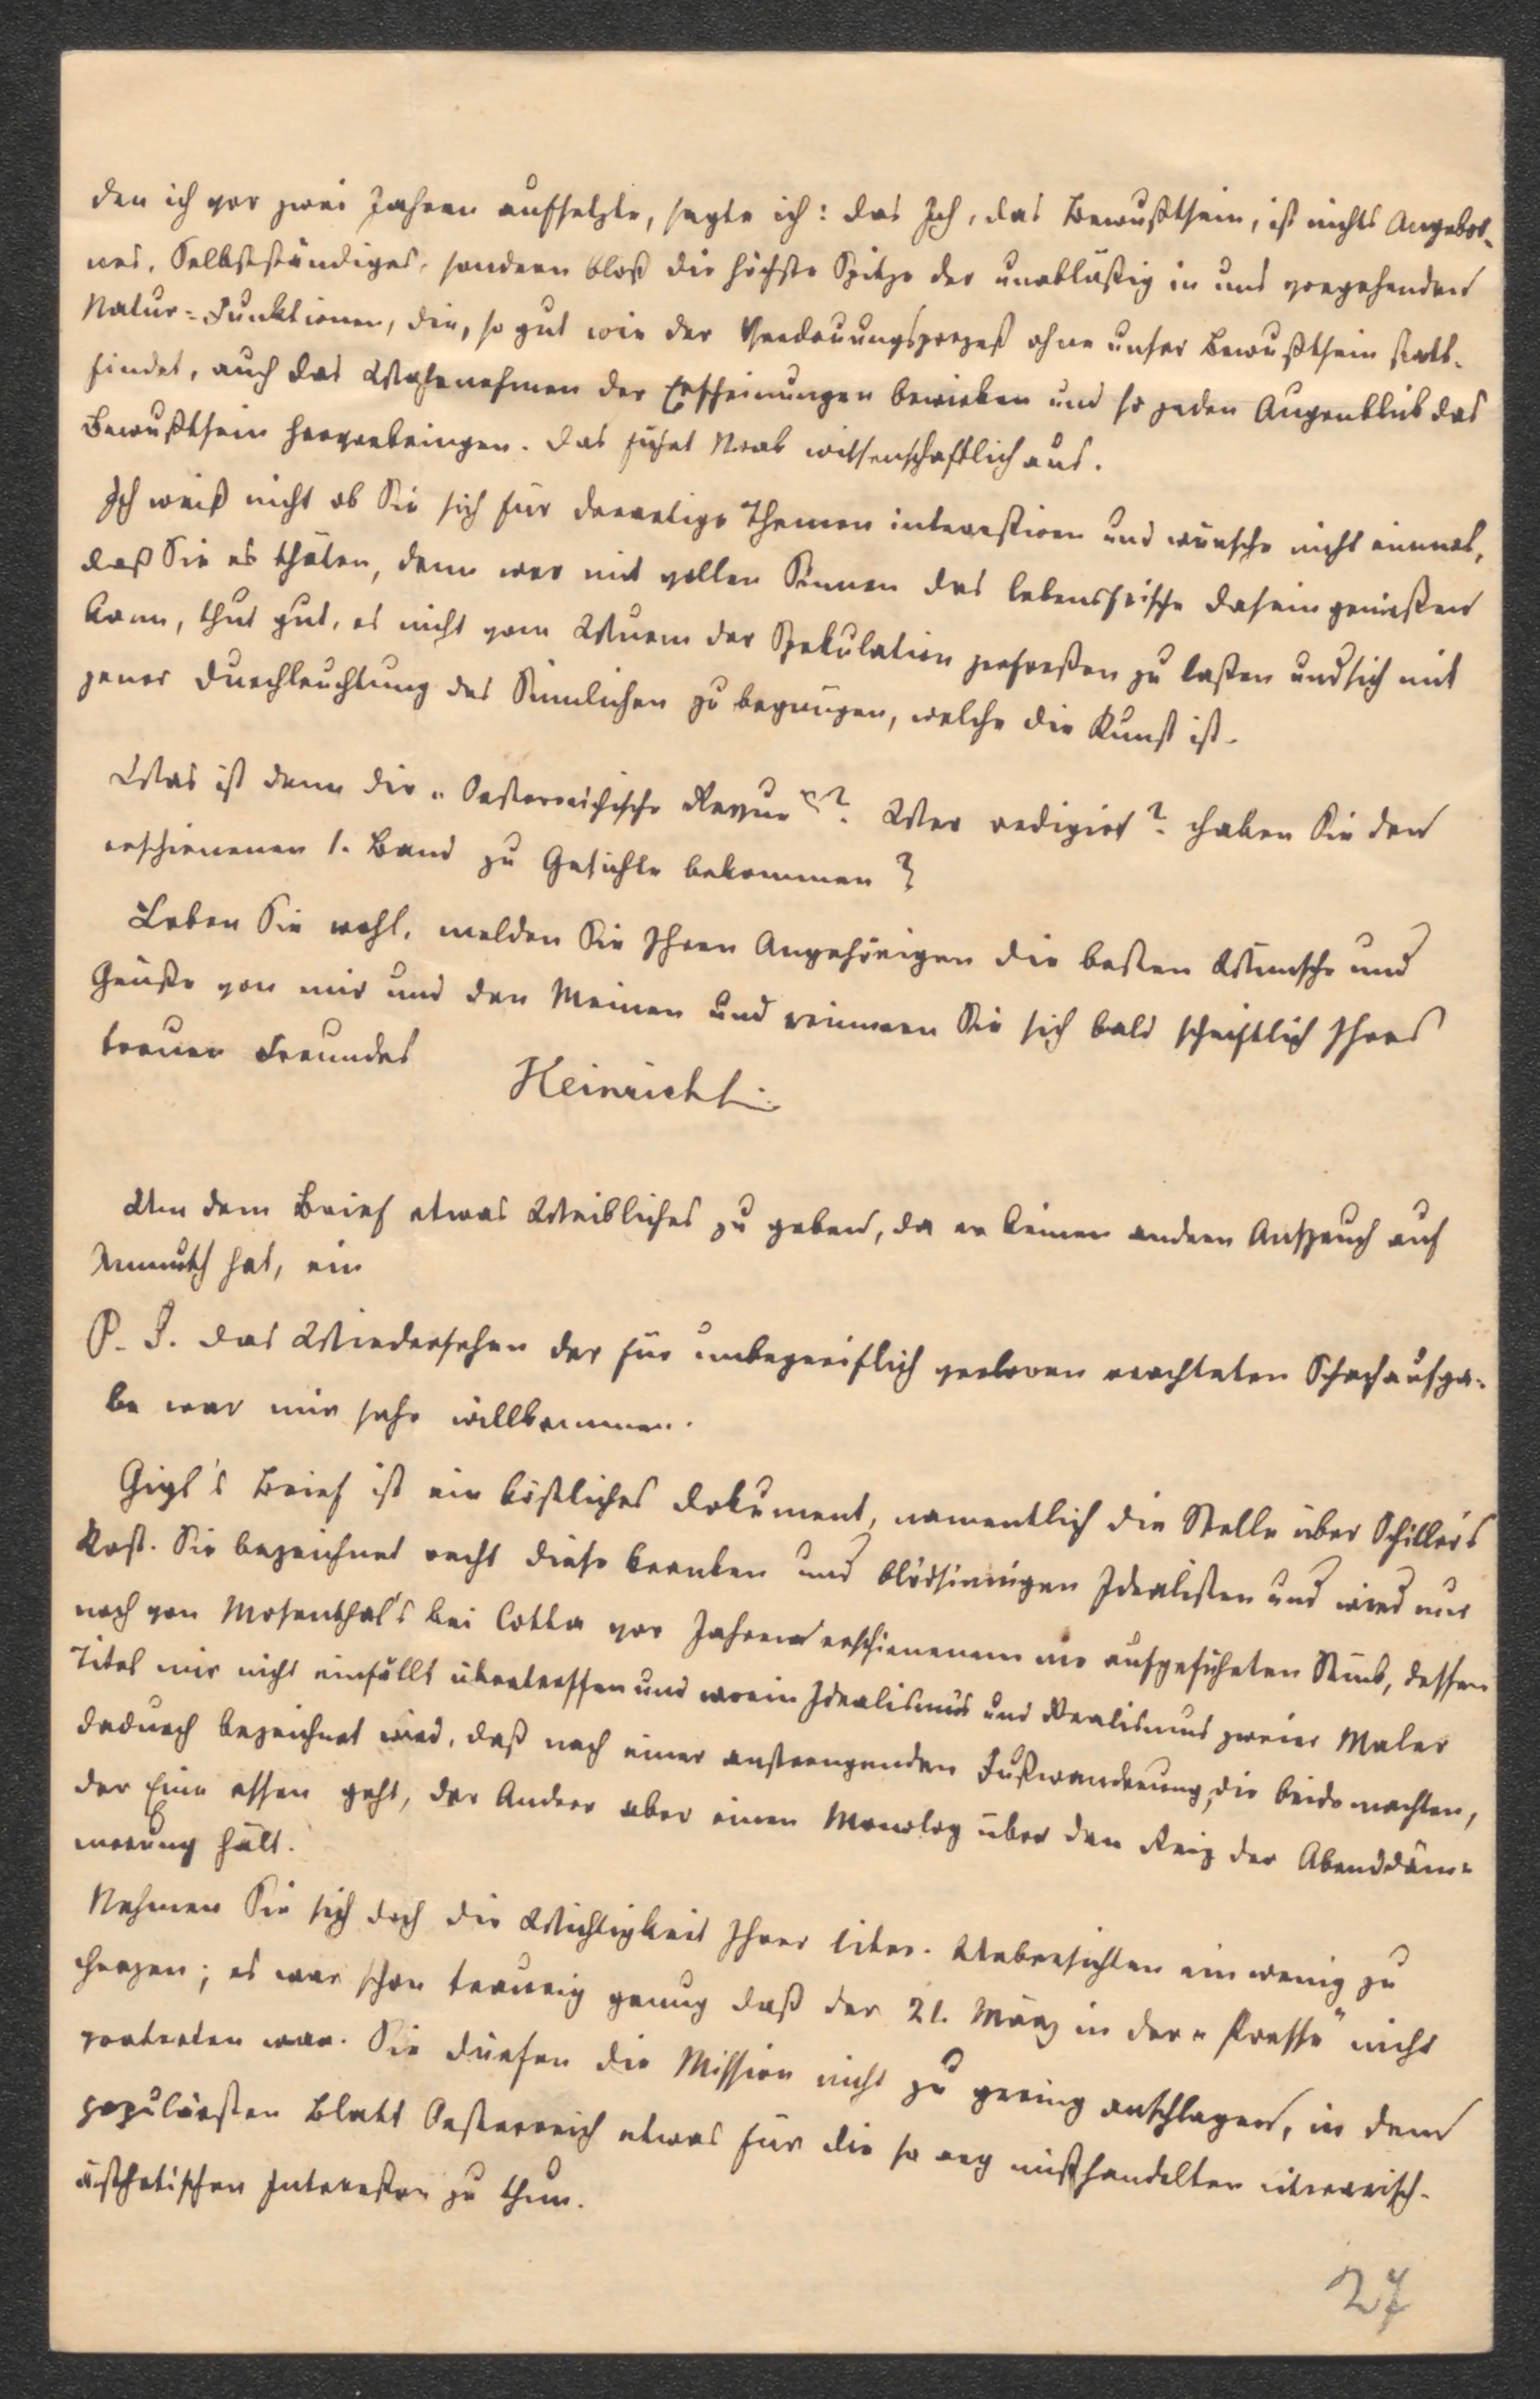 den ich vor zwei Jahren aufsetzte, sagte ich: das Ich, das Bewußtsein, ist nichts Angebor-
nes, Selbstständiges, sondern bloß die höchste Spitze der unabläßig in uns vorgehenden
Natur-Funktionen, die, so gut wie der Verdauungsprozeß ohne unser Bewußtsein statt-
findet, auch das Wahrnehmen der Erscheinungen bewirken und so jeden Augenblick das
Bewußtsein hervorbringen. Das führt Noak wissenschaftlich aus.
Ich weiß nicht ob Sie sich für derartige Themen interessiren und wünsche nicht einmal,
daß Sie es thäten, denn wer mit vollen Sinnen das lebensfrische Dasein genießen
kann, thut gut, es nicht vom Wurm der Spekulation zerfreßen zu laßen und sich mit
jener Durchleuchtung des Sinnlichen zu begnügen, welche die Kunst ist.
Was ist denn die „Oesterreichische Revue"? Wer redigirt? Haben Sie den
erschienenen 1. Band zu Gesichte bekommen?
Leben Sie wohl, melden Sie Ihren Angehörigen die besten Wünsche und
Grüße von mir und den Meinen und erinnern Sie sich bald schriftlich Ihres
treuen Freundes
Heinrich
Um dem Brief etwas Weibliches zu geben, da er keinen andern Anspruch auf
Anmuth hat, ein
P. S. Das Wiedersehen der für unbegreiflich verloren erachteten Schachaufga-
be war mir sehr willkommen.
Gigl's Brief ist ein köstliches Dokument, namentlich die Stelle über Schiller's
Kost. Sie bezeichnet recht diese kranken und blödsinnigen Idealisten und wird nur
noch von Mosenthal's bei Cotta vor Jahren erschienenem nie aufgeführten Stück, dessen
Titel mir nicht einfällt übertroffen und worin Idealismus und Realismus zweier Maler
dadurch bezeichnet wird, daß nach einer anstrengenden Fußwanderung, die beide machten,
der Eine essen geht, der Andere aber einen Monolog über den Reiz der Abenddäm-
merung hält.
Nehmen Sie sich doch die Wichtigkeit Ihrer liter. Uebersichten ein wenig zu
Herzen; es war schon traurig genug daß der 21. März in der „Presse" nicht
vertreten war. Sie dürfen die Mission nicht zu gering anschlagen, in dem
populärsten Blatt Oesterreich etwas für die so arg mißhandelten literarisch-
ästhetischen Interessen zu thun.
27